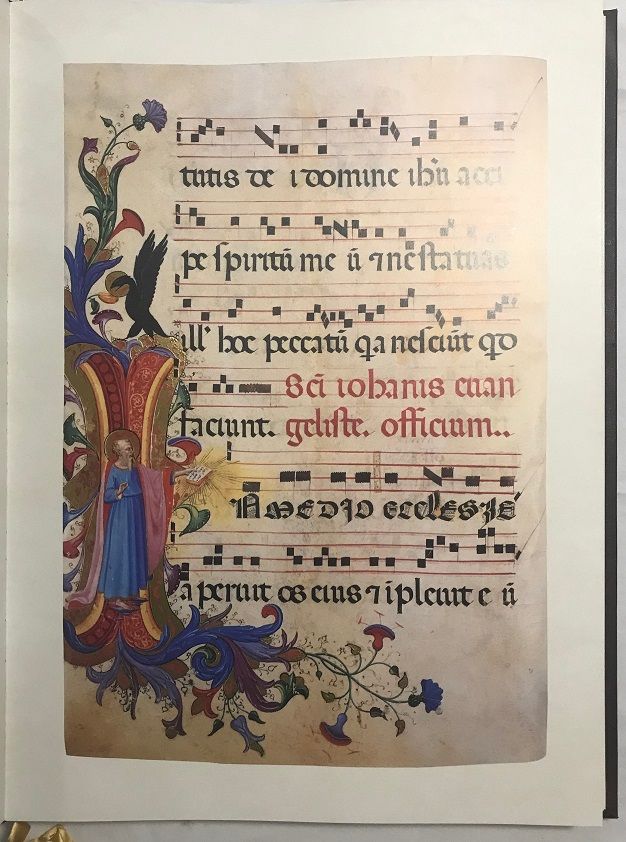 tutis de i domine ih̄u acci
pe spiritū me ū ⁊ ne statuas
ill' hoc peccatū qa nesciūt qd
Sci iohanis euan
faciunt. geliste. officium..
N MEDIO ECCLESIE
aperuit os eius ⁊ ipleuit e ū